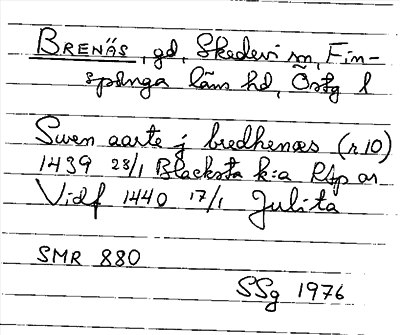 BRENÄS, gd, Skedevi sn, Fin-
spånga läns hd, Östg l
Swen aarte j bredhenæs (r 10)
1439 23/1 Blacksta k:a Rtp or
Vidf 1440 17/1 Julita
SMR 880
SSg 1976